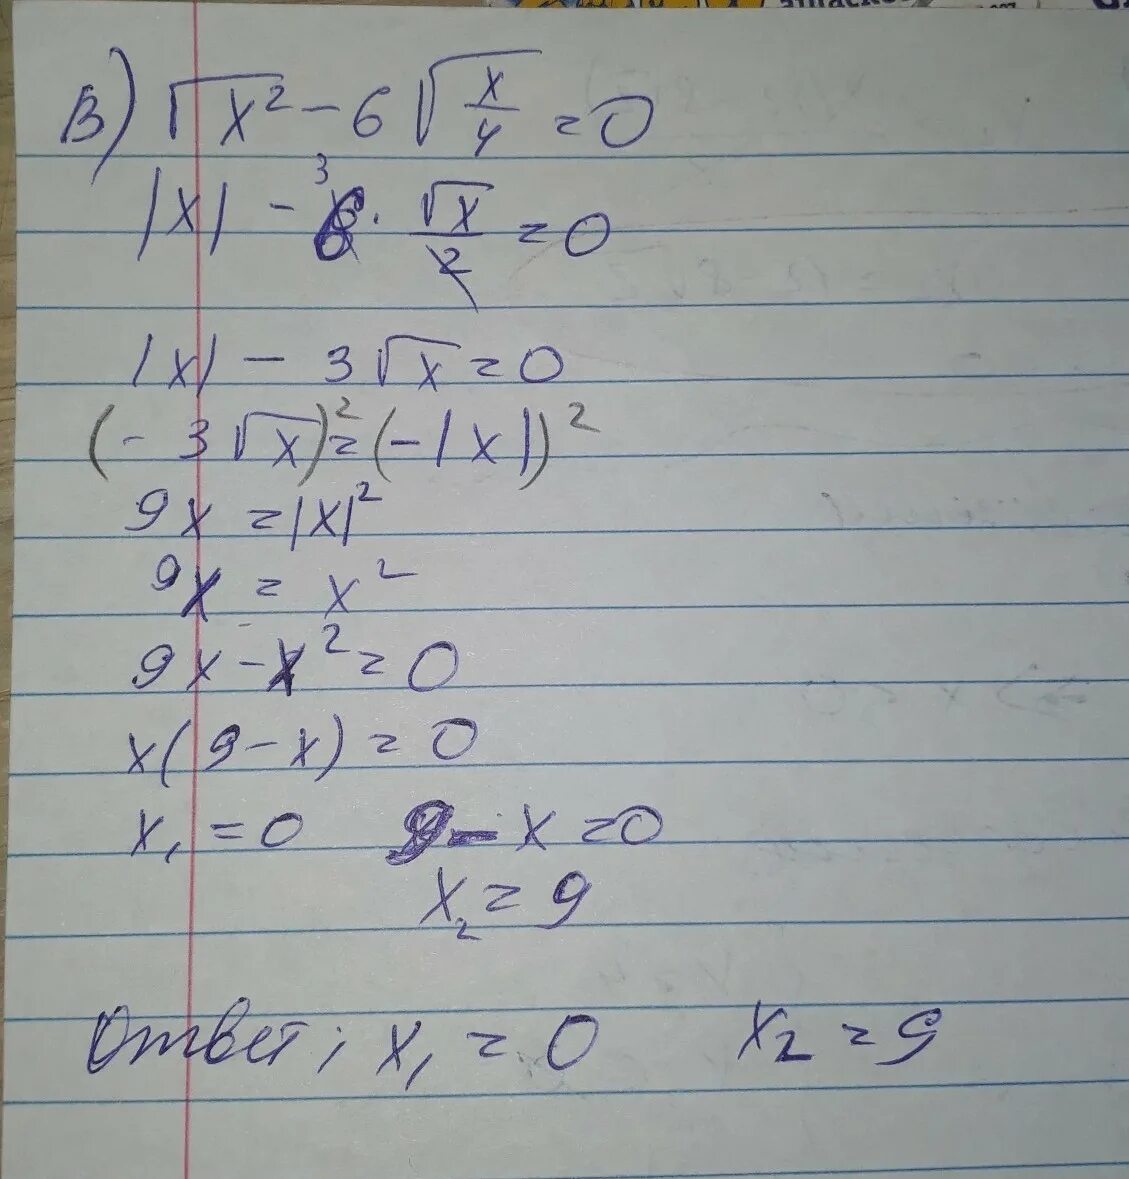 В) √x² - 6√x/4 = 0
|x| - 6³ · √x/2 = 0
|x| - 3√x = 0
(- 3√x)² = (-|x|)²
9x = |x|²
9x = x²
9x - x² = 0
x(9 - x) = 0
x₁ = 0 9 - x = 0
x₂ = 9
Ответ; x₁ = 0 x₂ = 9